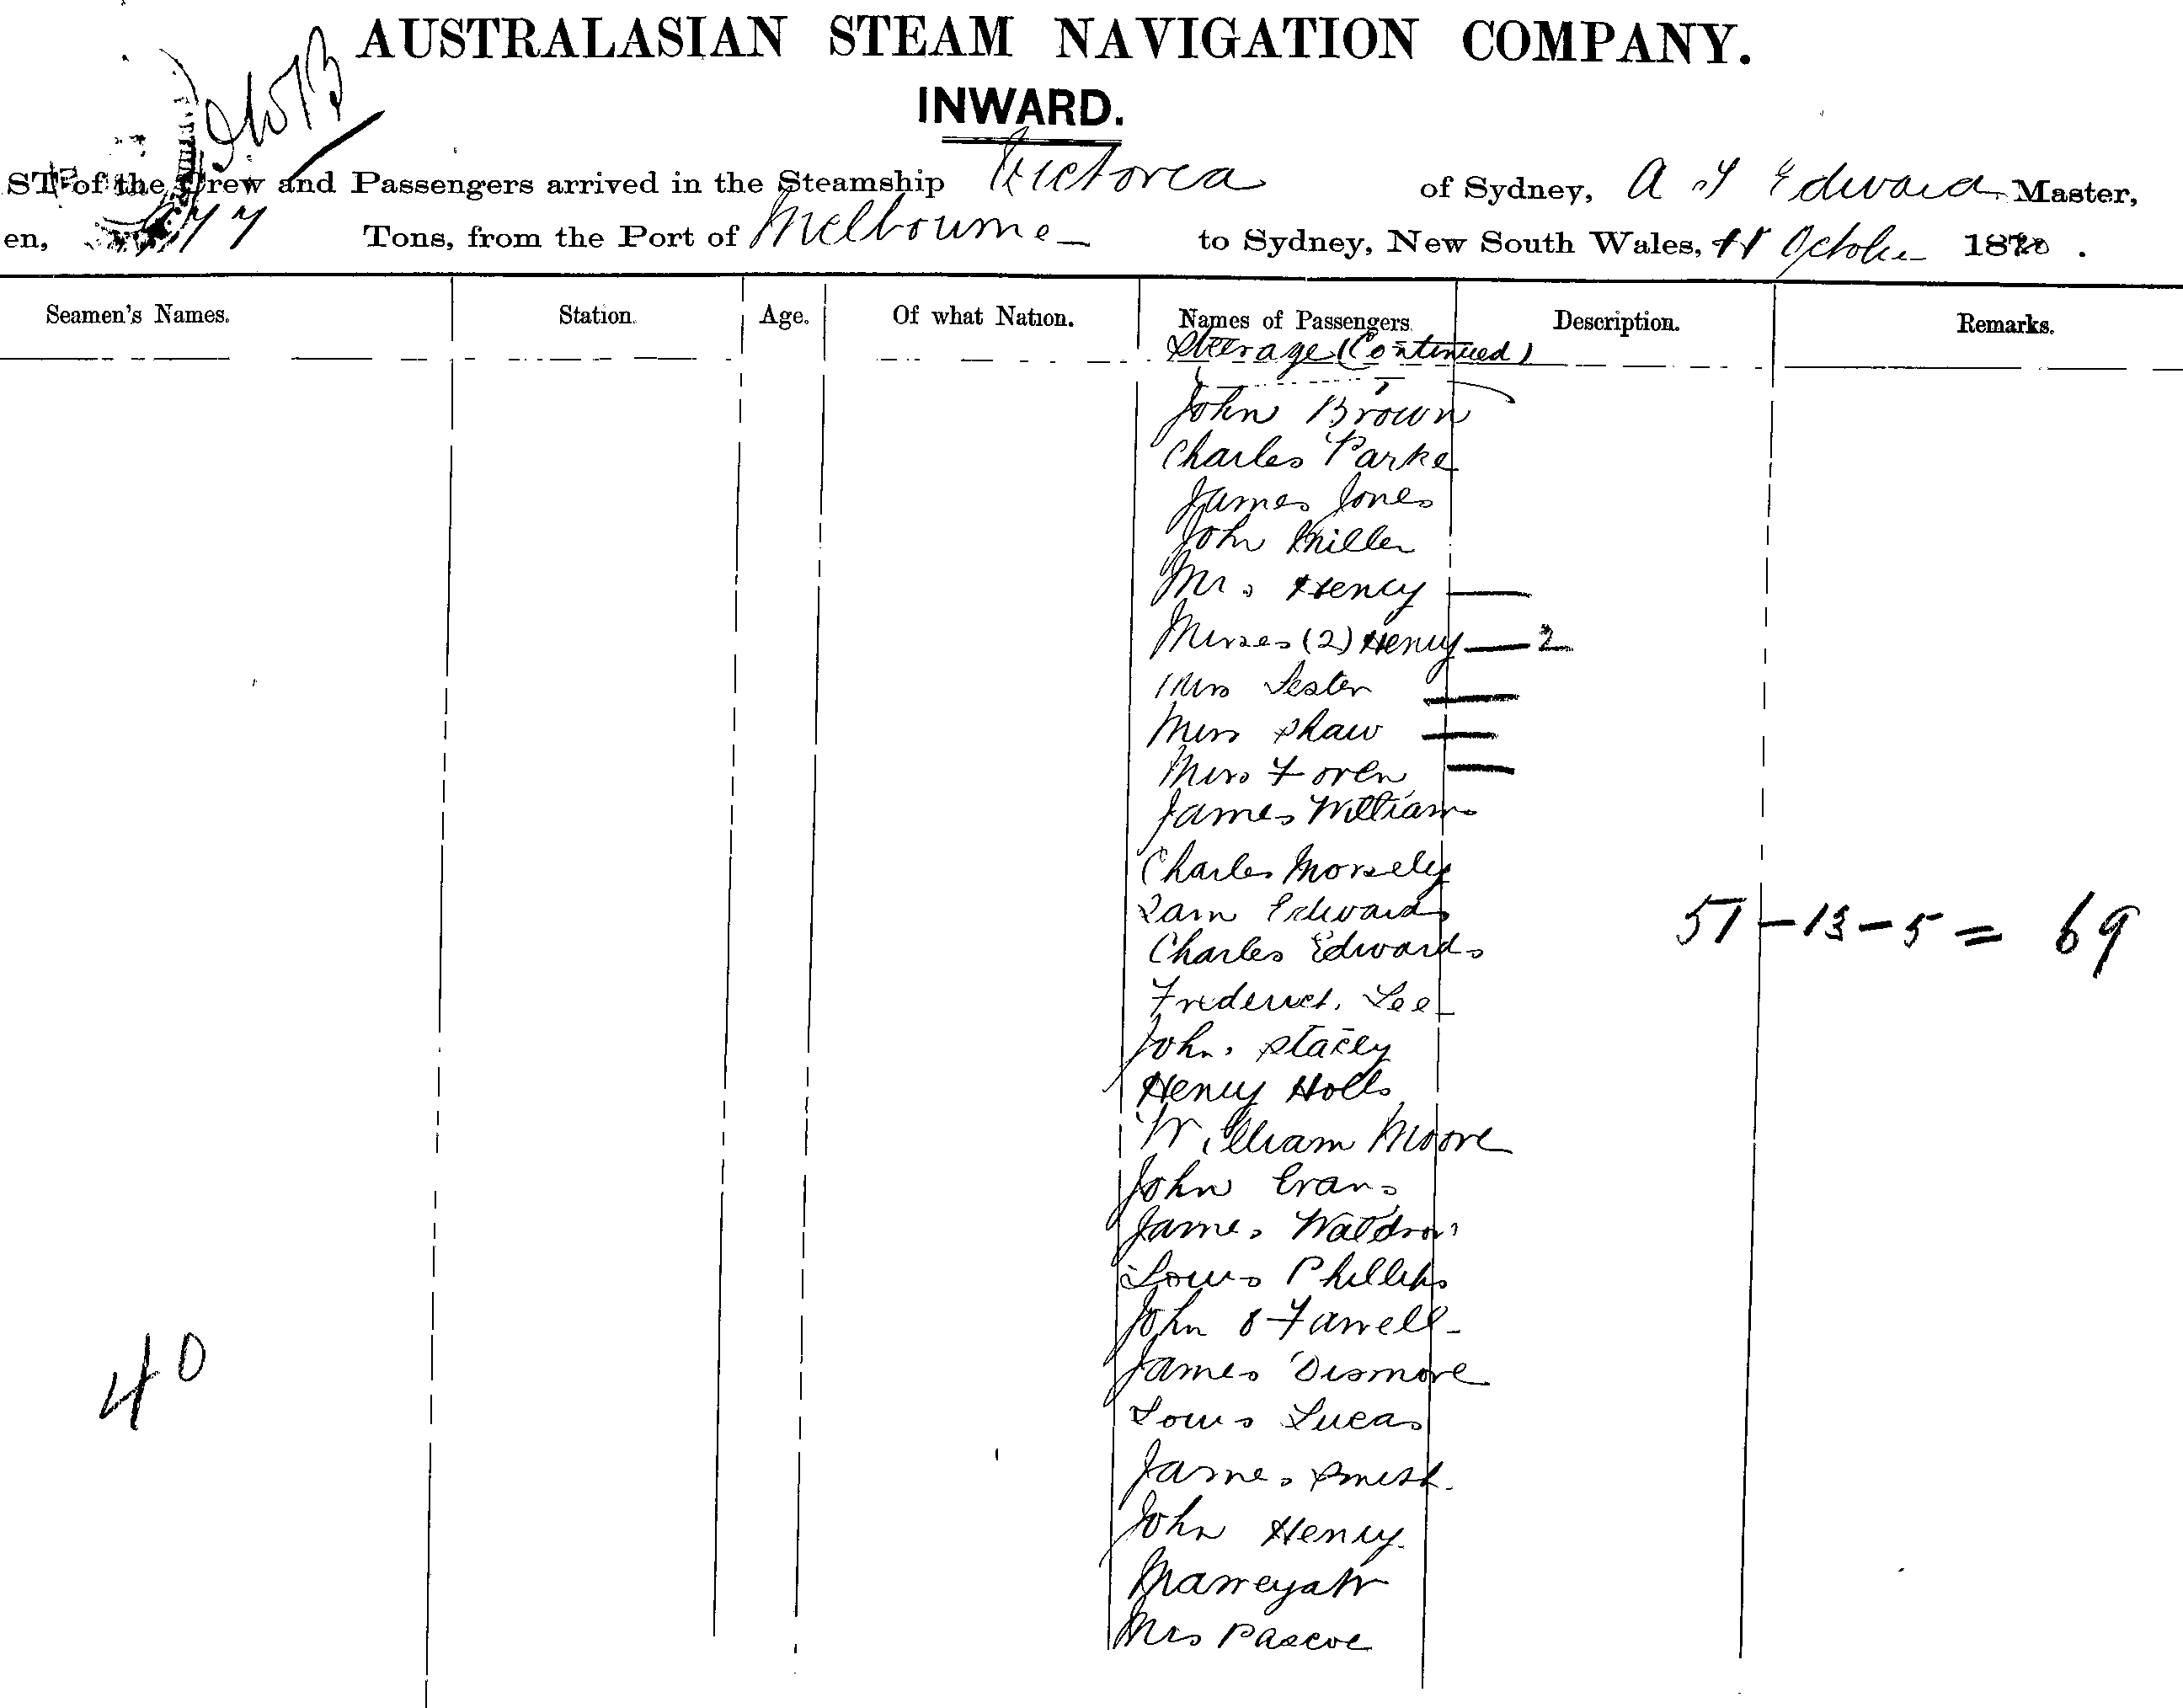 AUSTRALASIAN STEAM NAVIGATION COMPANY.
INWARD.
ST of the Crew and Passengers arrived in the Steamship Victoria of Sydney, A J Edward Master,
en, Tons, from the Port of Melbourne to Sydney, New South Wales, October 18
Seamen's Names. Station. Age. Of what Nation. Names of Passengers. Description. Remarks.
Steerage (Continued)
John Brown
Charles Parke
James Jones
John Miller
Mr. Henry —
Misses (2) Henry — 2
Mrs Lester —
Miss Shaw —
Miss —
James Williams
Charles Morsely
Sam Edwards
Charles Edwards
51 - 13 - 5 = 69
Frederick Lee
John Stacey
Henry Holls
William Moore
John Evans
James Waldron
Louis Phillips
John O Farrell
40
James Dismore
Louis Lucas
James Smith.
John Henry.
Mrs Pascoe